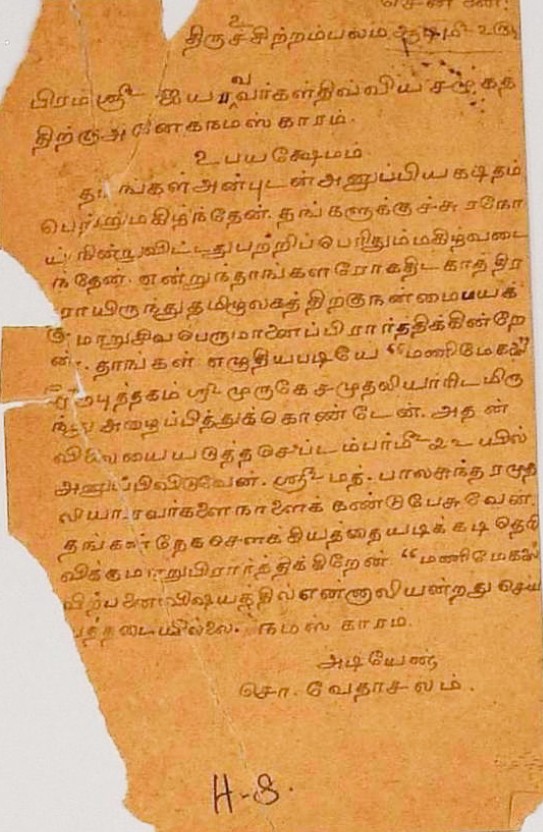 சென்னை.
உ
திருச்சிற்றம்பலம்
பிரம்மஸ்ரீ ஐயரவர்கள் திவ்விய சமுகத
திற்கு அனேக நமஸ்காரம்.
உபயக்ஷேமம்
தாங்கள் அன்புடன் அனுப்பிய கடிதம்
பெற்று மகிழ்ந்தேன். தங்களுக்குச் சுரநோ
ய் நின்றுவிட்டது பற்றிப் பெரிதும் மகிழ்வடை
ந்தேன். என்றுந் தாங்களரோகதிட காத்திர
ராயிருந்து தமிழுலகத்திற்கு நன்மை பயக்
குமாறு சிவபெருமானைப் பிரார்த்திக்கின்றே
ன். தாங்கள் எழுதியபடியே "மணிமேகலை"
புத்தகம் ஸ்ரீ முருகேச முதலியாரிடமிரு
ந்து அழைப்பித்துக் கொண்டேன். அதன்
விலையை யடுத்த செப்டம்பர்மீ உஉ யில்
அனுப்பிவிடுவேன். ஸ்ரீமத். பாலசுந்தர முத
லியாரவர்களை நாளைக் கண்டு பேசுவேன்.
தங்கள் தேக சௌக்கியத்தை யடிக்கடி தெரி
விக்குமாறு பிரார்த்திக்கிறேன் "மணிமேகலை
விற்பனை விஷயத்தில் என்னாலியன்றது செய
்யத்தடையில்லை. நமஸ்காரம்.
அடியேன்,
சொ. வேதாசலம்.
H-8.